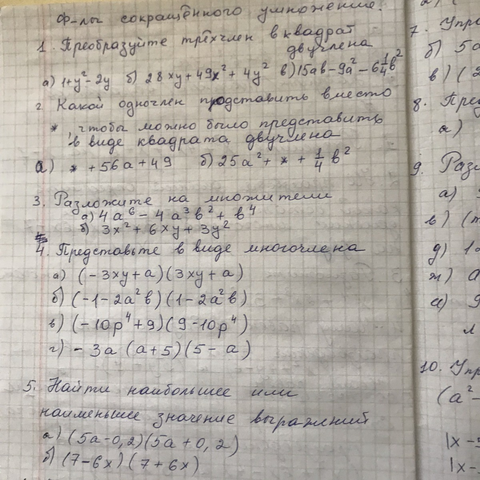 Ф-лы сокращённого умножения.
1. Преобразуйте трёхчлен в квадрат
двучлена
а) 1+y²-2y б) 28xy+49x²+4y² в) 15ab-9a²-6¼b²
2 Какой одночлен представить вместо
*, чтобы можно было представить
в виде квадрата двучлена
а) * + 56a + 49 б) 25a² + * + ¼ b²
3. Разложите на множители
а) 4a⁶ - 4a³b² + b⁴
б) 3x² + 6xy + 3y²
4. Представьте в виде многочлена
а) (-3xy+a)(3xy+a)
б) (-1-2a²b)(1-2a²b)
в) (-10p⁴+9)(9-10p⁴)
г) -3a(a+5)(5-a)
5. Найти наибольшее или
наименьшее значение выражений
а) (5a-0,2)(5a+0,2)
б) (7-6x)(7+6x)
7. Упр
б) 5a
в) (2
8. Пре
а)
9. Раз
а)
в) (m
д) 1
ж) a
10. Упр
(a²-
|x-
|x-